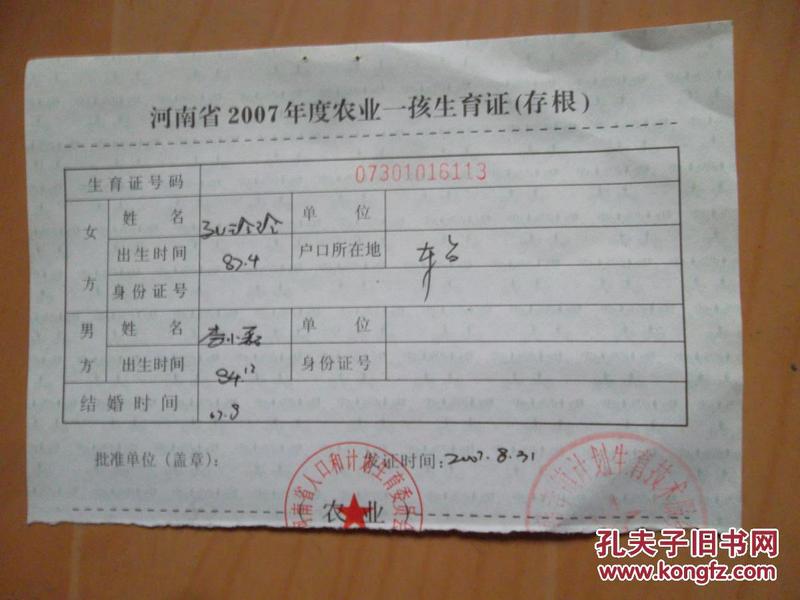 河南省2007年度农业一孩生育证(存根)
生育证号码 07301016113
女方 姓名 单位
出生时间 87.4 户口所在地
身份证号
男方 姓名 单位
出生时间 84.12 身份证号
结婚时间 07.8
批准单位（盖章）： 发证时间：2007.8.31
河南省人口和计划生育委员会
计划生育技术
农业
孔夫子旧书网
www.kongfz.com